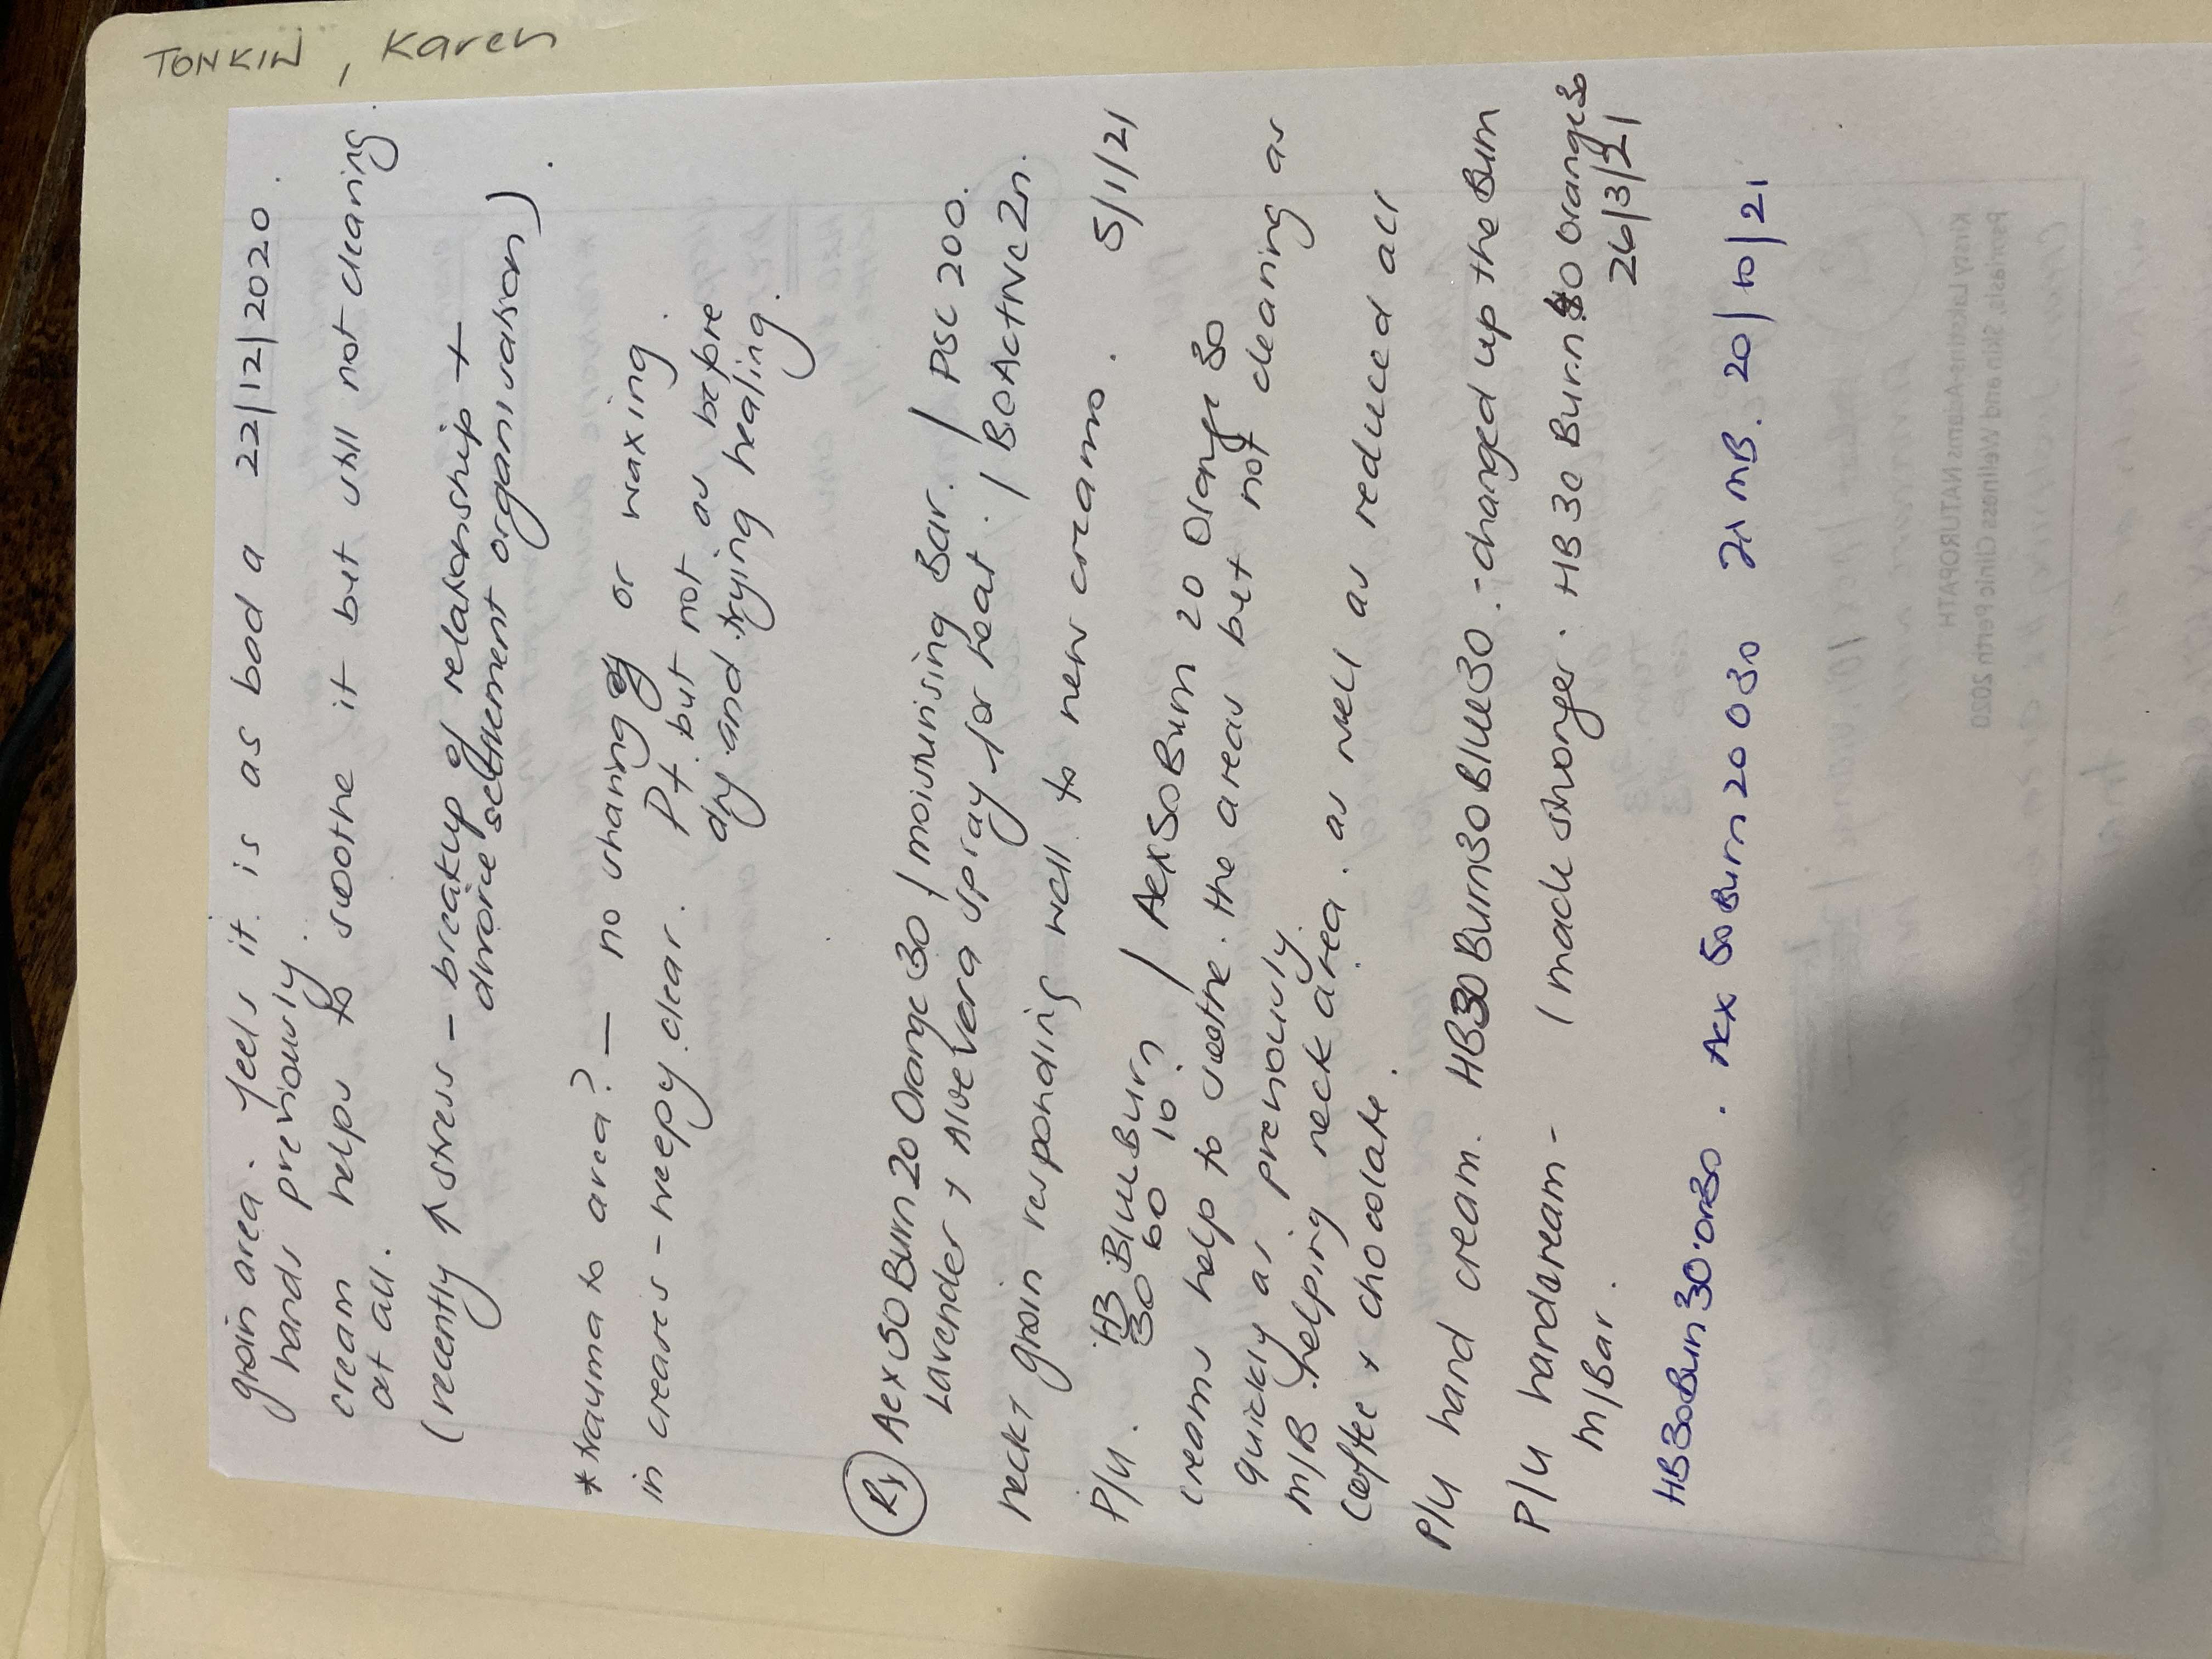 TONKIN, Karen
groin area. feels it is as bad a 22/12/2020.
hands previously.
cream helps to soothe it but still not clearing
at all.
(recently ↑ stress - breakup of relationship +
divorce settlement organisation).
* trauma to area? — no shaving or waxing
in creases - weepy clear. Pt but not as before
dry and trying healing.
Rx Aex 50 Burn 20 Orange 30 / moisturising Bar. / PSC 200.
Lavender + Aloe Vera spray for heat. / BOActive 2n.
neck + groin responding well to new creams. 5/1/21
P/u. HB 30 Blue 60 Burn 10 / Aex 50 Burn 20 Orange 30
creams help to soothe. the areas but not clearing as
quickly as previously.
M/B helping neck area. as well as reduced all
coffee + chocolate.
P/u hand cream. HB30 Burn30 Blue30. - changed up the Burn
P/u handcream - (made stronger. HB 30 Burn 40 Orange 30
m/Bar. 26/3/21
HB 30 Burn 30 Or 30. Aex 50 Burn 20 O 30 MB. 20/10/21
Psoriasis, Skin and Wellness Clinic Perth 2020
Kirsty Lakstins-Adams NATUROPATH